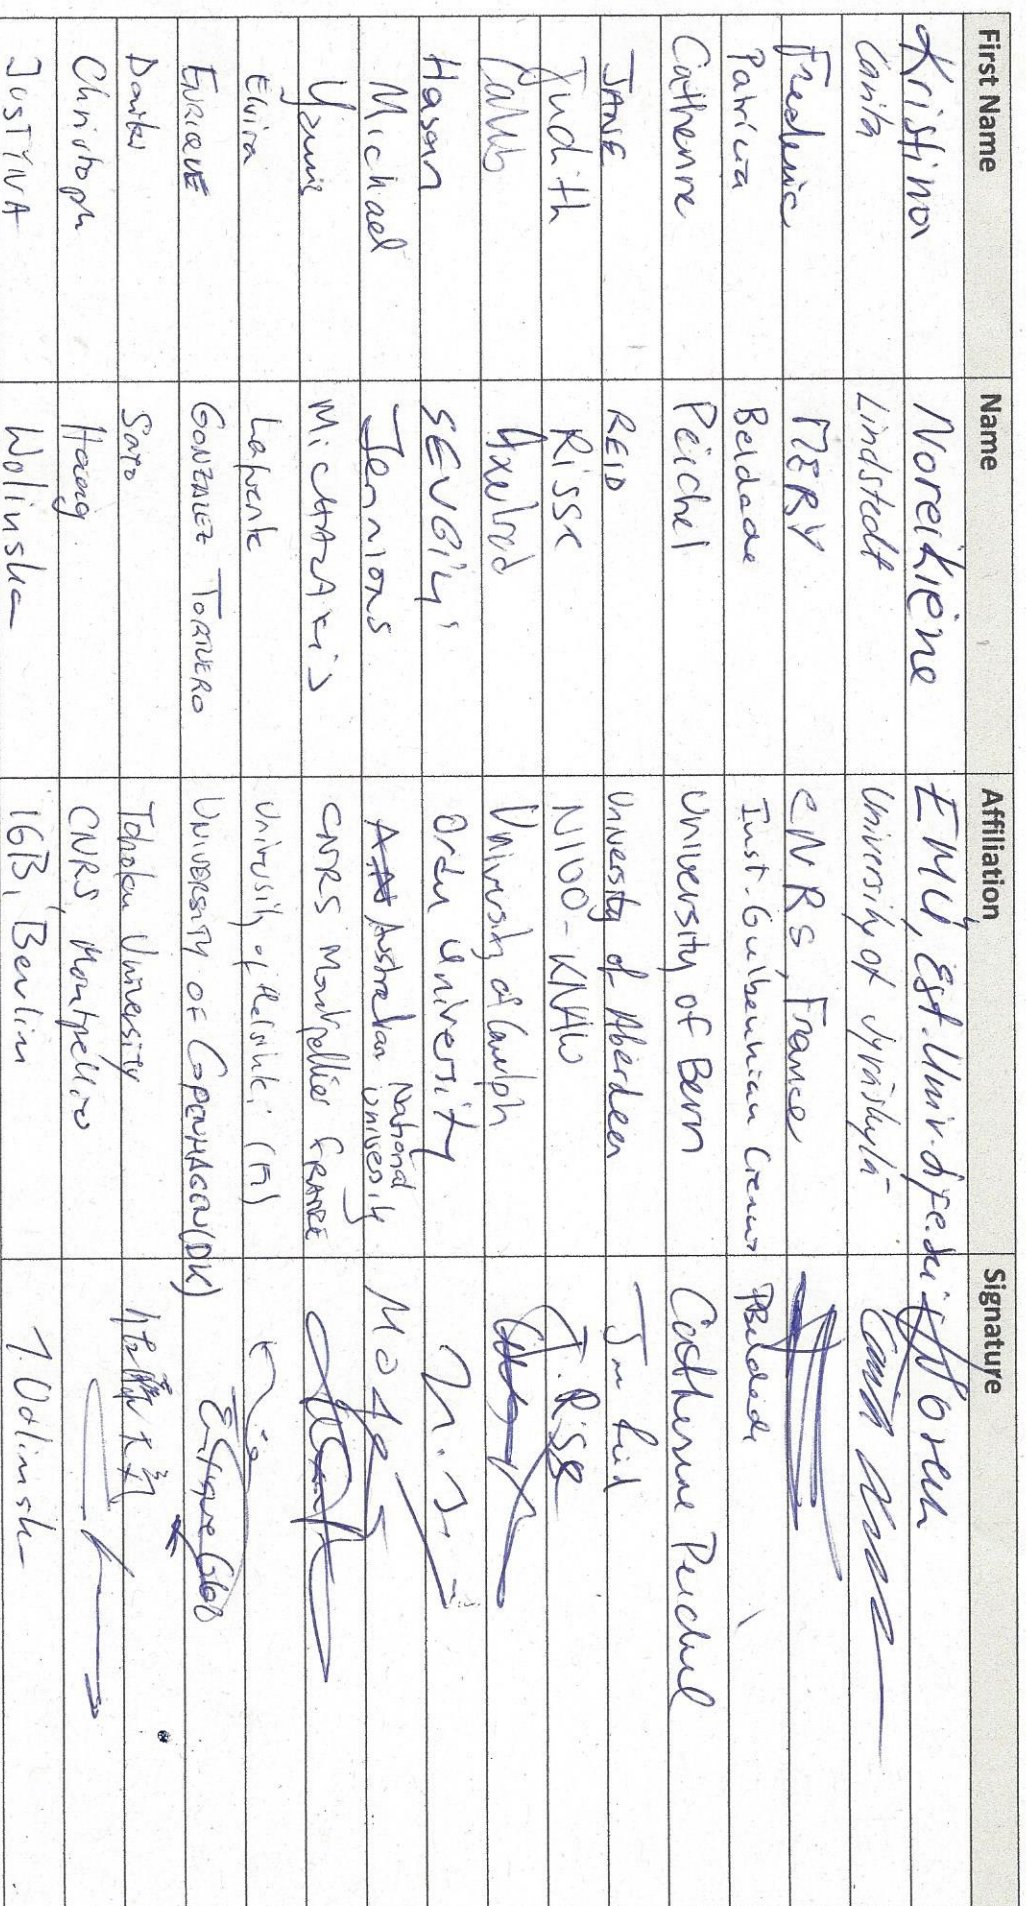 First Name Name Affiliation Signature
Kristina Noreikiene EMÜ, Est. Univ. of Noreik
Carita Lindstedt University of Jyväskylä Carita
Frederic MERY CNRS, France
Patrícia Beldade Inst. Gulbenkian Ciencia PBeldade
Catherine Peichel University of Bern Catherine Peichel
JANE REID University of Aberdeen Jane Reid
Judith Risse NIOO-KNAW J. Risse
Axelrod University of Guelph
Hasan SEVGİLİ Ordu University
Michael Jennions Australian National University
Yannis MICHALAKIS CNRS Montpellier FRANCE
Elvira Lafuente University of Helsinki (FI)
ENRIQUE GONZALEZ TORTUERO UNIVERSITY OF COPENHAGEN (DK) Enrique
SATO Tohoku University
Christoph Haag CNRS, Montpellier
JUSTYNA Wolinska IGB, Berlin J. Wolinska